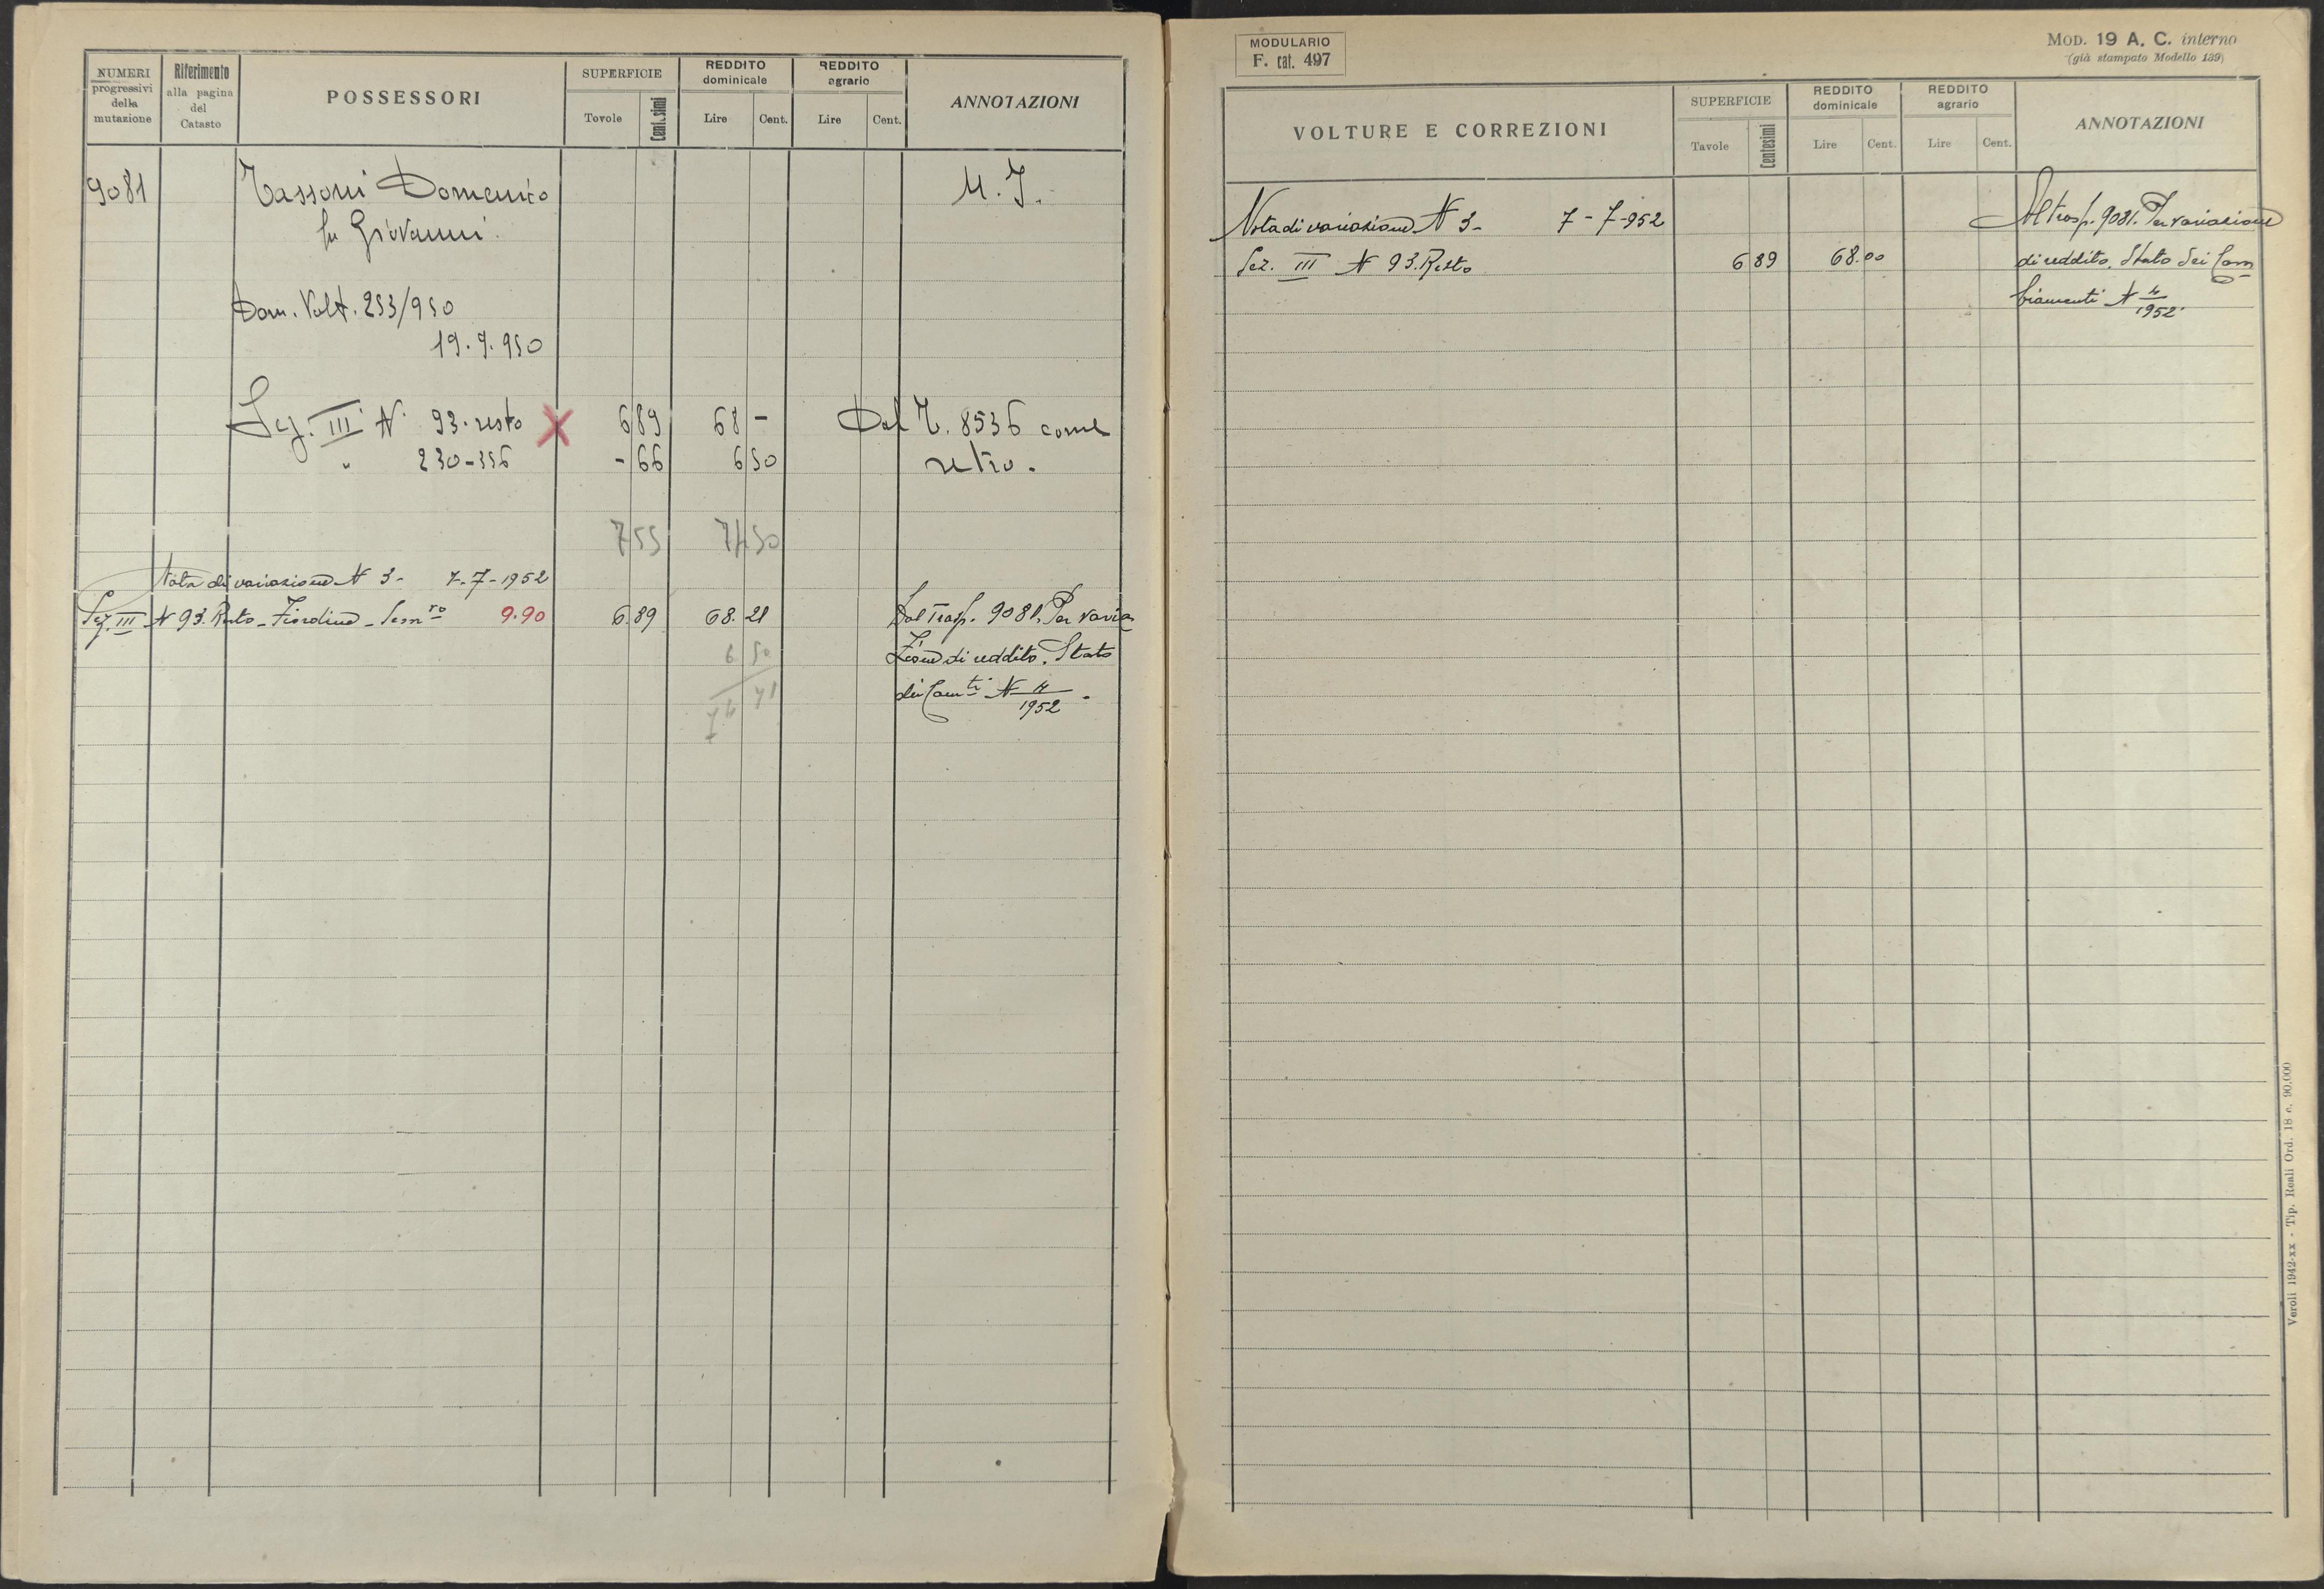 NUMERI progressivi della mutazione
Riferimento alla pagina del Catasto
POSSESSORI
SUPERFICIE
Tavole
Centesimi
REDDITO dominicale
Lire
Cent.
REDDITO agrario
Lire
Cent.
ANNOTAZIONI
9081 Tassoni Domenico M. I.
fu Giovanni.
Dom. Volt. 253/950
19.9.950
Sez. III N. 93. resto X 6 89 68 - Dal T. 8536 come
" 230-356 - 66 6 50 retro.
7 55 74 50
Nota di variazione N 3- 7-7-1952
Sez. III N 93. Resto - - Sem.ro 9.90 6.89 68.21 Dal Trasp. 9081. Per varia
zione di reddito. Stato
6 50
dei Cam.ti N 4/1952.
74 71
MODULARIO
F. cat. 497
MOD. 19 A. C. interno
(già stampato Modello 139)
VOLTURE E CORREZIONI
SUPERFICIE
Tavole
Centesimi
REDDITO dominicale
Lire
Cent.
REDDITO agrario
Lire
Cent.
ANNOTAZIONI
Nota di variazione N 3- 7-7-952 Al trasp. 9081. Per variazione
Sez. III N 93. Resto 6 89 68.00 di reddito. Stato dei Cam
biamenti N 4/1952.
Veroli 1942-xx - Tip. Reali Ord. 18 c. 90.000